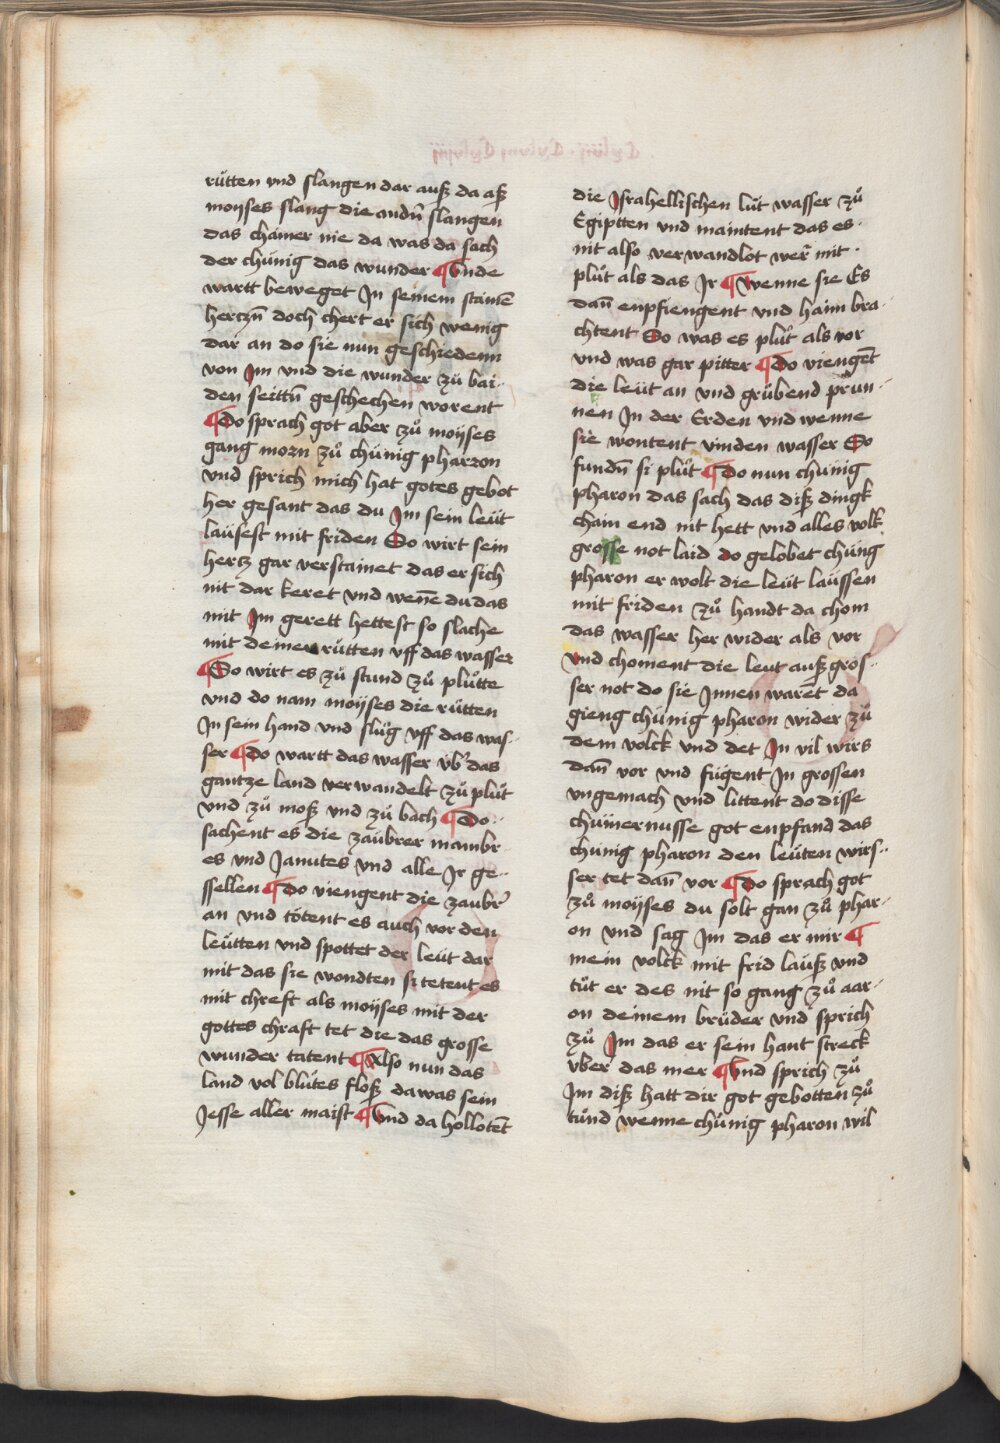 rütten vnd slangen dar auß da aß
moyses slang die andn̄ slangen
das chainer nie da was da sach
der chünig das wunder ¶ Vnde
wartt beweget Jn seinem stainē
hertzn̄ doch chert er sich wenig
dar an do sie nun geschiedenn
von Jm vnd die wunder zů bai-
den seittn̄ geschechen worent
¶ Do sprach got aber zů moyses
gang morn zů chünig pharaon
vnd sprich mich hat gotes gebot
her gesant das du Jm sein leüt
lausest mit friden So wirt sein
hertz gar verstainet das er sich
nit dar keret vnd wen̄e du das
mit Jm gerett hettest so slache
mit deiner rütten vff das wasser
¶ So wirt es zů stund zů plůtte
vnd do nam moyses die rütten
Jn sein hand vnd slůg vff das was-
ser ¶ Do wartt das wasser v̈b᷑ das
gantze land verwandelt zů plůt
vnd zů moß vnd zů bach ¶ Do
sachent es die zaubrer mambr
es vnd Januites vnd alle Jr ge-
ssellen ¶ Do viengent die zaubr᷑
an vnd tötent es auch vor den
leütten vnd spottet der leüt dar
mit das sie wondten si tetent es
mit chreft als moyses mit der
gottes chraft tet die das grosse
wunder tatent ¶ Also nun das
land vol blůtes floß da was sein
Jesse aller maist ¶ Vnd da holloten̄t
die Jsrahellischen lüt wasser zů
Egiptten vnd maintent das es
nit also verwandlot wer̄ mit
plůt als das Jr ¶ Wenne sie Es
dan̄ enpfiengent vnd haim bra-
chtent So was es plůt als vor
vnd was gar pitter ¶ Do viengēt
die leüt an vnd grůbend prun-
nen Jn der Erden vnd wenne
sie wontent vinden wasser So
fundn̄ si plůt ¶ Do nun chünig
pharon das sach das diß dingk
chain end nit hett vnd alles volk
grosse not laid do gelobet chüng
pharon er wolt die leüt laussen
mit friden zů handt da chom
das wasser her wider als vor
vnd choment die leut auß gros-
ser not do sie Jnnen warēt da
gieng chünig pharon wider zů
dem volck vnd det Jn vil wirs
dan̄ vor vnd fůgent Jn grossen
vngemach vnd littent do disse
chümernusse got enpfand das
chunig pharon den leüten wirs-
ser tet dan̄ vor ¶ Do sprach got
zů moyses du solt gan zů phar-
on vnd sag Jm das er mir ¶
mein volck mit frid lauß vnd
tůt er des nit so gang zů aar-
on deinem brüder vnd sprich
zů Jm das er sein hant streck
v̈ber das mer ¶ Vnd sprich zů
Jm diß hatt dir got gebotten zů
tůnd wenne chünig pharon wil